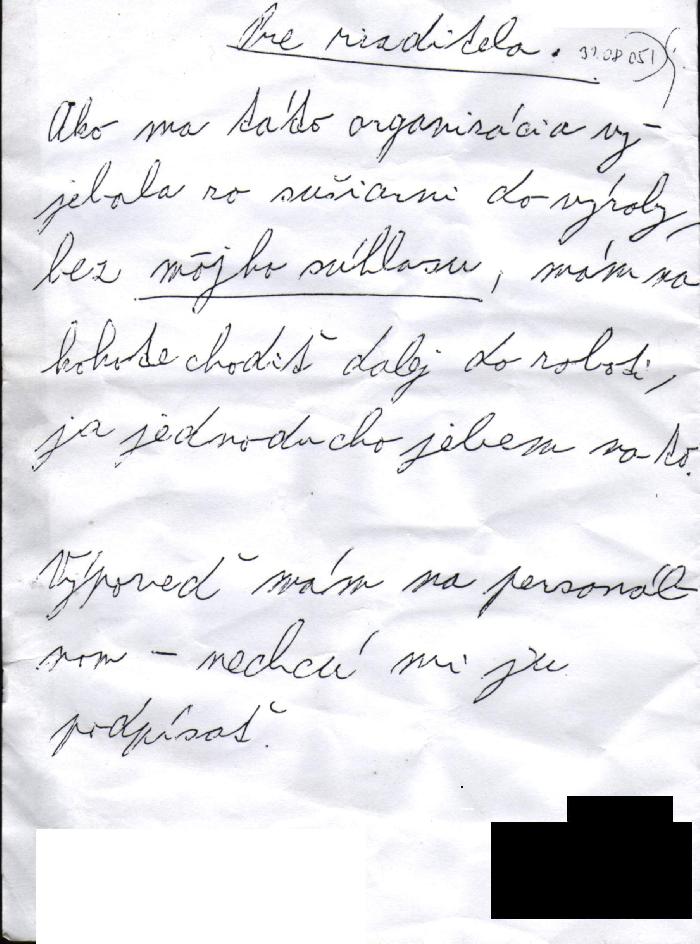 Pre riaditela.
31.08.05
Ako ma táto organizácia vy-
jebala zo sušiarni do výroby,
bez môjho súhlasu, mám na
kokote chodiť dalej do roboti,
ja jednoducho jebem na to.
Výpoveď mám na personál-
nom - nechcú mi ju
podpísať.